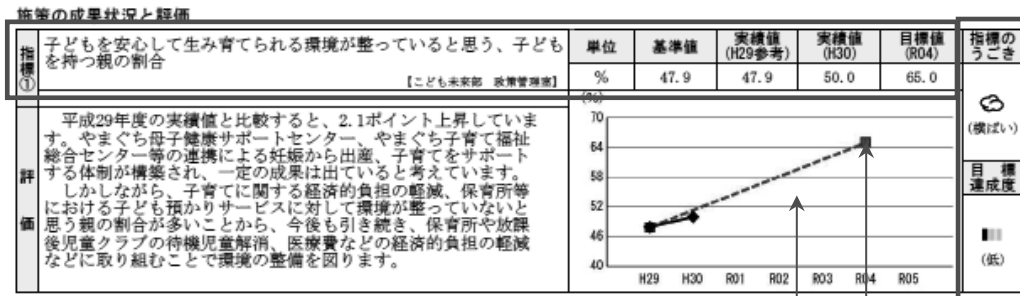 施策の成果状況と評価
指標①
子どもを安心して生み育てられる環境が整っていると思う、子ども
を持つ親の割合
【こども未来部 政策管理室】
単位 基準値 実績値(H29参考) 実績値(H30) 目標値(R04)
% 47.9 47.9 50.0 65.0
指標の
うごき
(横ばい)
目標
達成度
(低)
評価
平成29年度の実績値と比較すると、2.1ポイント上昇していま
す。やまぐち母子健康サポートセンター、やまぐち子育て福祉
総合センター等の連携による妊娠から出産、子育てをサポート
する体制が構築され、一定の成果は出ていると考えています。
しかしながら、子育てに関する経済的負担の軽減、保育所等
における子ども預かりサービスに対して環境が整っていないと
思う親の割合が多いことから、今後も引き続き、保育所や放課
後児童クラブの待機児童解消、医療費などの経済的負担の軽減
などに取り組むことで環境の整備を図ります。
(%)
70
64
58
52
46
40
H29 H30 R01 R02 R03 R04 R05